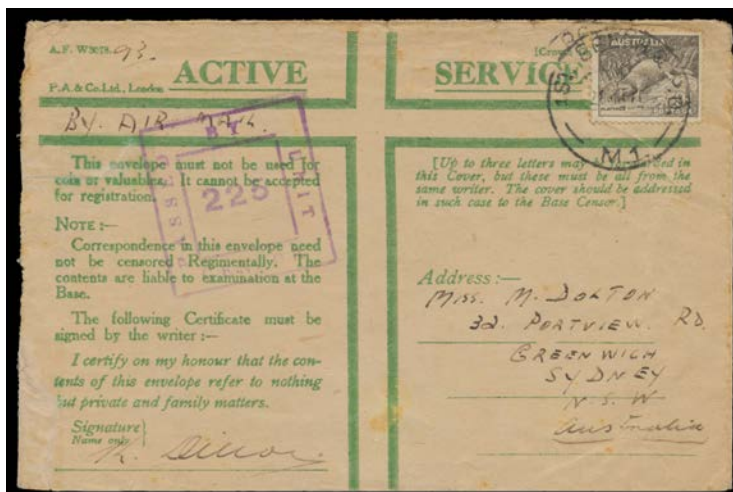 A.F. W3078. 93.
[Crown
P.A. & Co. Ltd., London
ACTIVE SERVICE
AUSTRALIA
BY. AIR MAIL.
M.1.
PASSED BY UNIT
225
This envelope must not be used for
coin or valuables. It cannot be accepted
for registration.
NOTE :—
Correspondence in this envelope need
not be censored Regimentally. The
contents are liable to examination at the
Base.
The following Certificate must be
signed by the writer :—
I certify on my honour that the con-
tents of this envelope refer to nothing
but private and family matters.
Signature}
Name only
[Up to three letters may be forwarded in
this Cover, but these must be all from the
same writer. The cover should be addressed
in such case to the Base Censor.]
Address :—
MISS. M. DOLTON
32. PORTVIEW. RD.
GREENWICH
SYDNEY
N.S.W
Australia